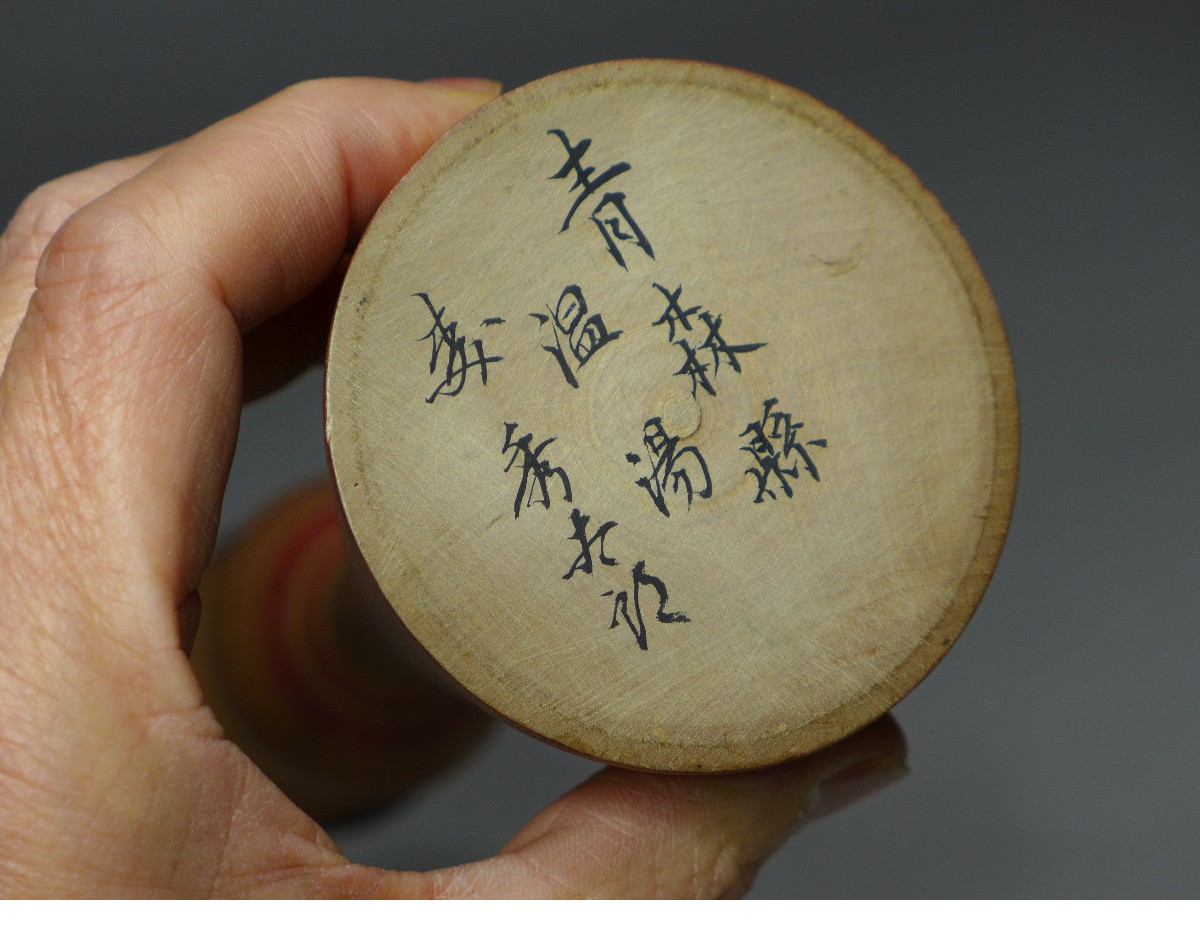 青森縣
温湯
盛秀太郎